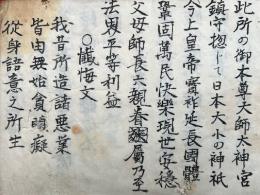 此所の御本尊大師太神宮
鎮守惣じて日本大小の神祇
今上皇帝寳祚延長國體
鞏固萬民快樂現世安穏
父母師長六親眷属乃至
法界平等利益
〇懺悔文
我昔所造諸悪業
皆由無始貪瞋癡
従身語意之所生